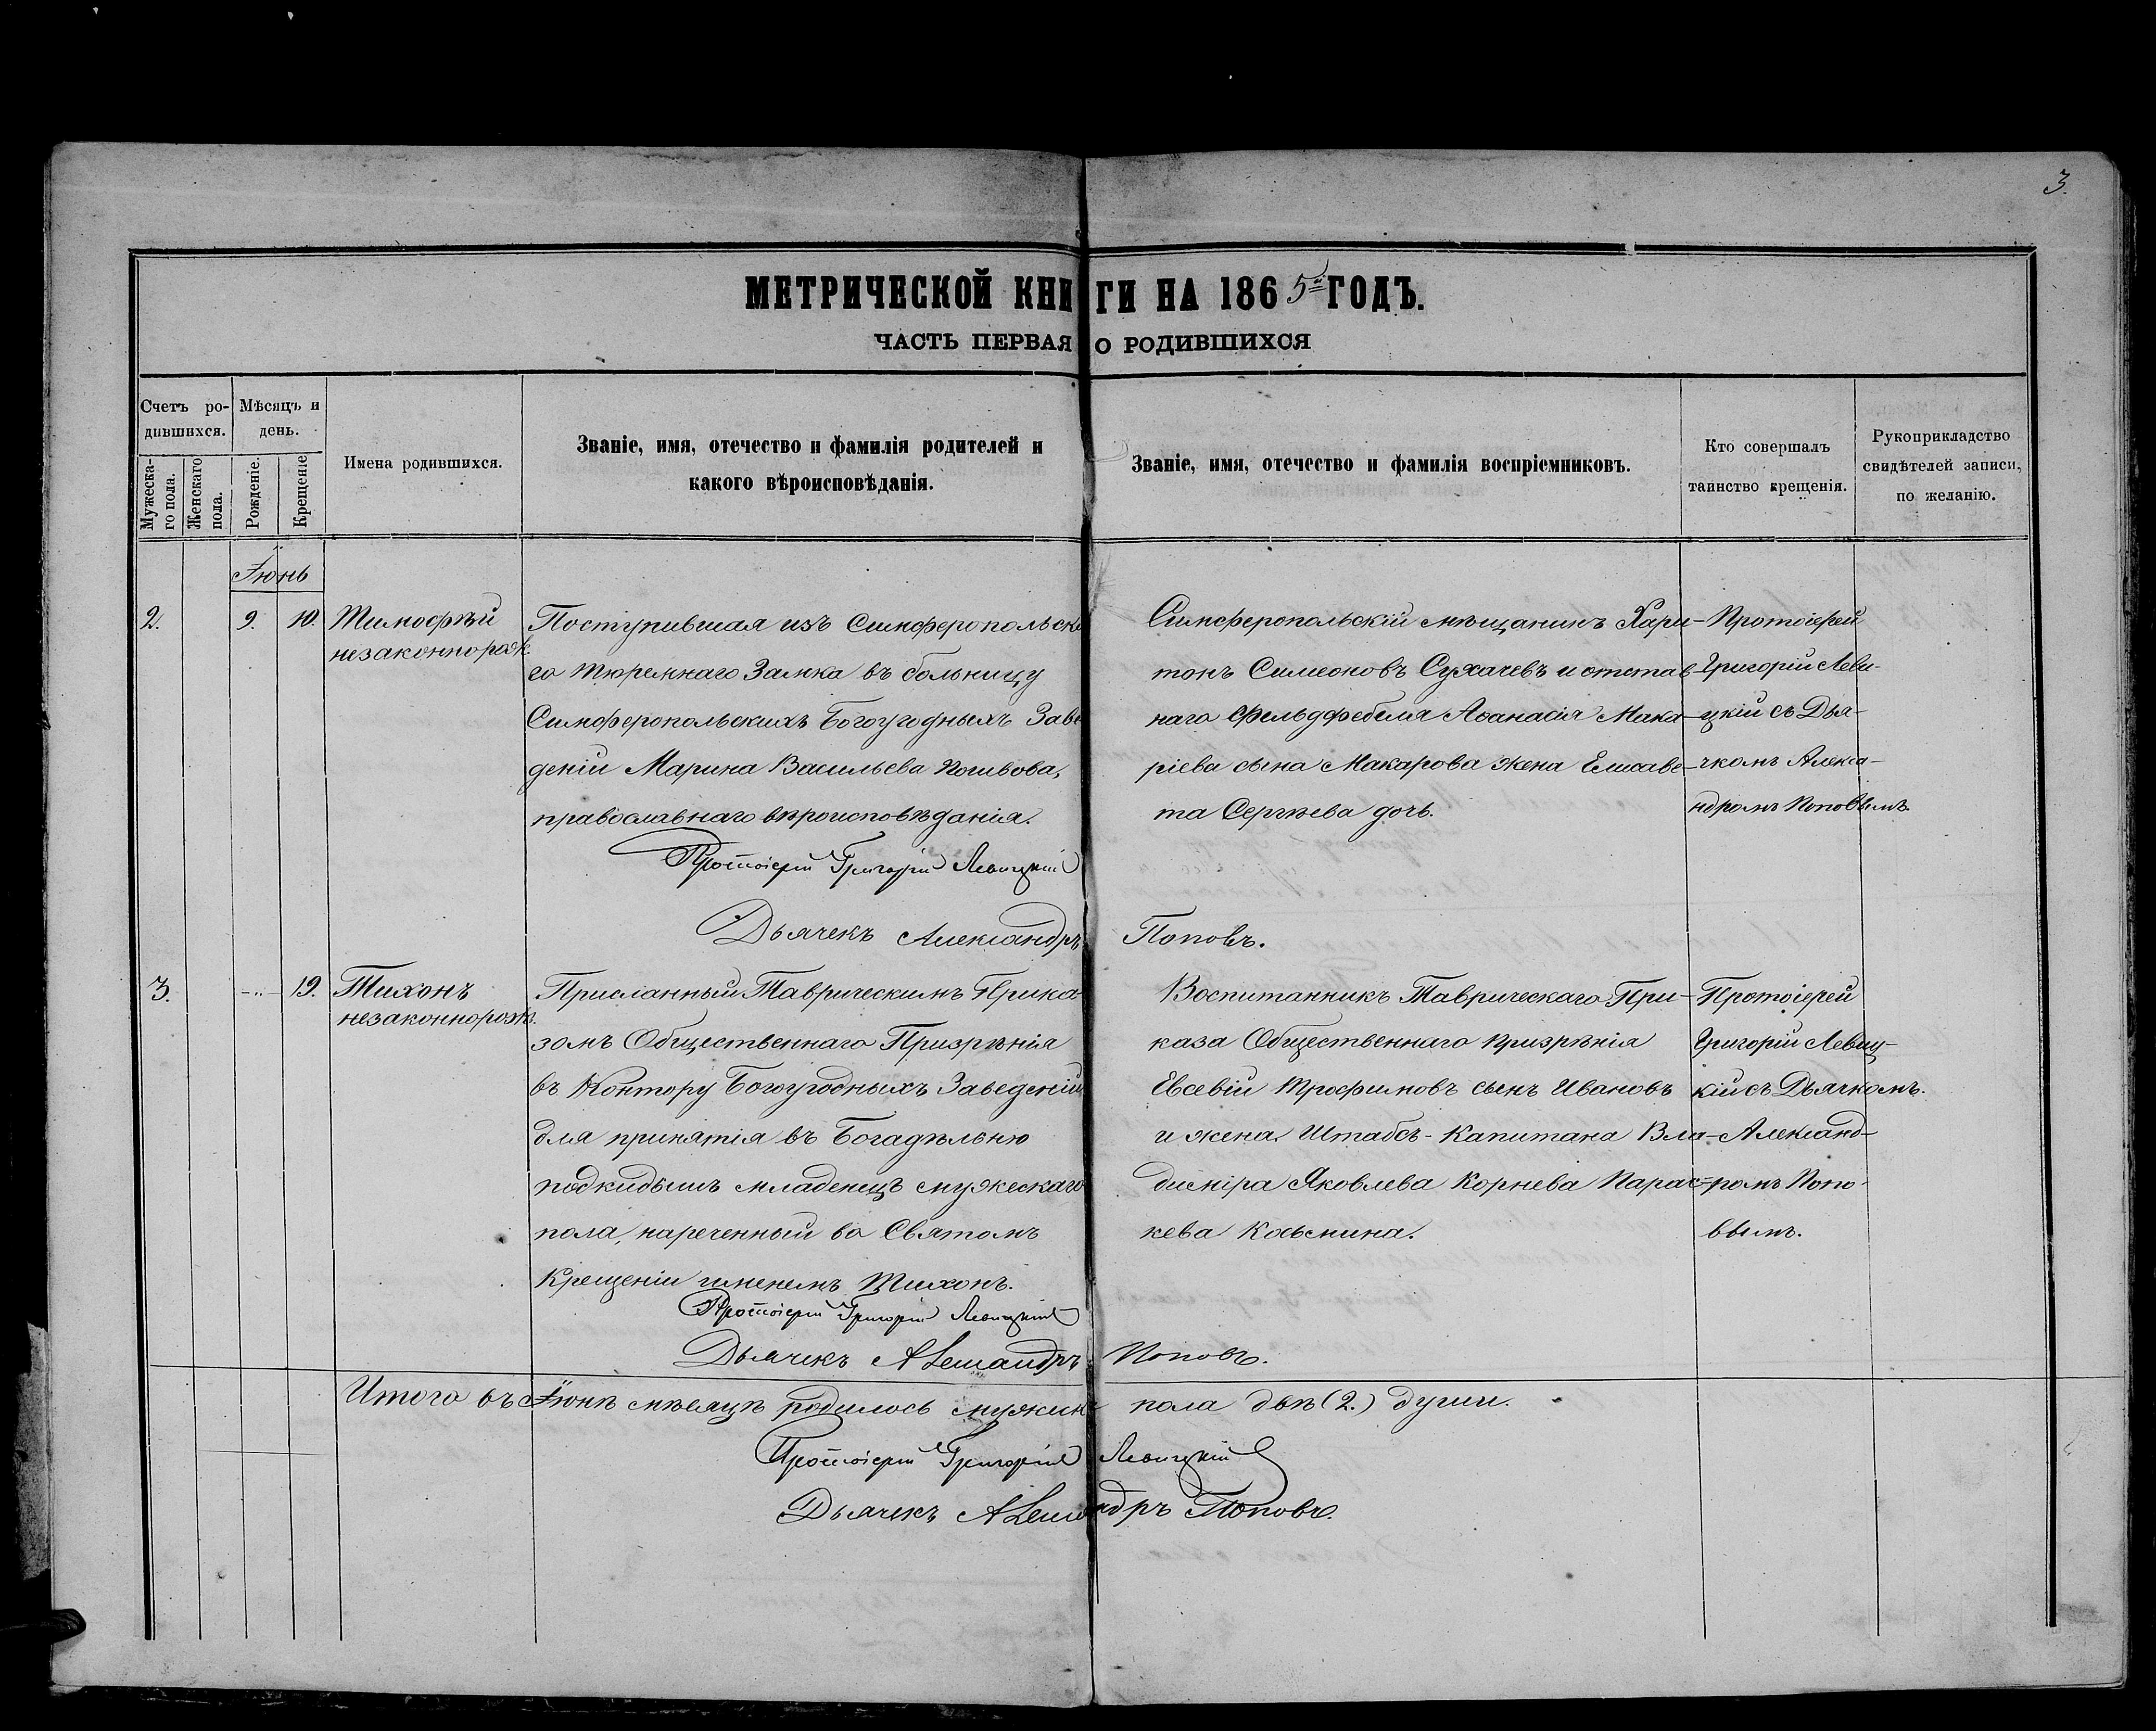 3.
МЕТРИЧЕСКОЙ КНИГИ НА 1865й ГОДЪ.
ЧАСТЬ ПЕРВАЯ О РОДИВШИХСЯ
Счетъ ро-
дившихся.
Мужеска-
го пола.
Женскаго
пола.
Мѣсяцъ и
день.
Рожденіе.
Крещеніе
Имена родившихся.
Званіе, имя, отечество и фамилія родителей и
какого вѣроисповѣданія.
Званіе, имя, отечество и фамилія воспріемниковъ.
Кто совершалъ
таинство крещенія.
Рукоприкладство
свидѣтелей записи,
по желанію.
Іюнь
2.
9.
10.
Тимофѣй
незаконнорож.
Поступившая изъ Симферопольска
го тюремнаго Замка въ больницу
Симферопольскихъ Богоугодныхъ Заве
деній Марина Васильева
православнаго вѣроисповѣданія.
Протоіерей Григорій Левицкій
Дьячекъ Александръ Поповъ.
Симферопольскій мѣщанинъ Хари-
тонъ Симеоновъ Сухачевъ и отстав-
наго Фельдфебеля Аѳанасія Мака-
ріева сына Макарова жена Елисаве-
та Сергѣева дочь.
Протоіерей
Григорій Леви-
цкій съ Дья-
чкомъ Алекса-
ндромъ Поповымъ.
3.
-„-
19.
Тихонъ
незаконнорож.
Присланный Таврическимъ Прика
зомъ Общественнаго Призрѣнія
въ Контору Богоугодныхъ Заведеній
для принятія въ Богадѣльню
подкидышъ младенецъ мужескаго
пола, нареченный во Святомъ
Крещеніи именемъ Тихонъ.
Протоіерей Григорій Левицкій
Дьячекъ Александръ Поповъ.
Воспитанникъ Таврическаго При-
каза Общественнаго призрѣнія
Евсевій Трофимовъ сынъ Ивановъ
и жена Штабсъ-Капитана Вла-
диміра Яковлева Корнева Парас-
кева Косьмина.
Протоіерей
Григорій Левиц-
кій съ Дьячкомъ
Александ-
ромъ Попо-
вымъ.
Итого въ Іюнѣ мѣсяцѣ родилось мужск пола двѣ (2.) души.
Протоіерей Григорій Левицкій
Дьячекъ Александръ Поповъ.